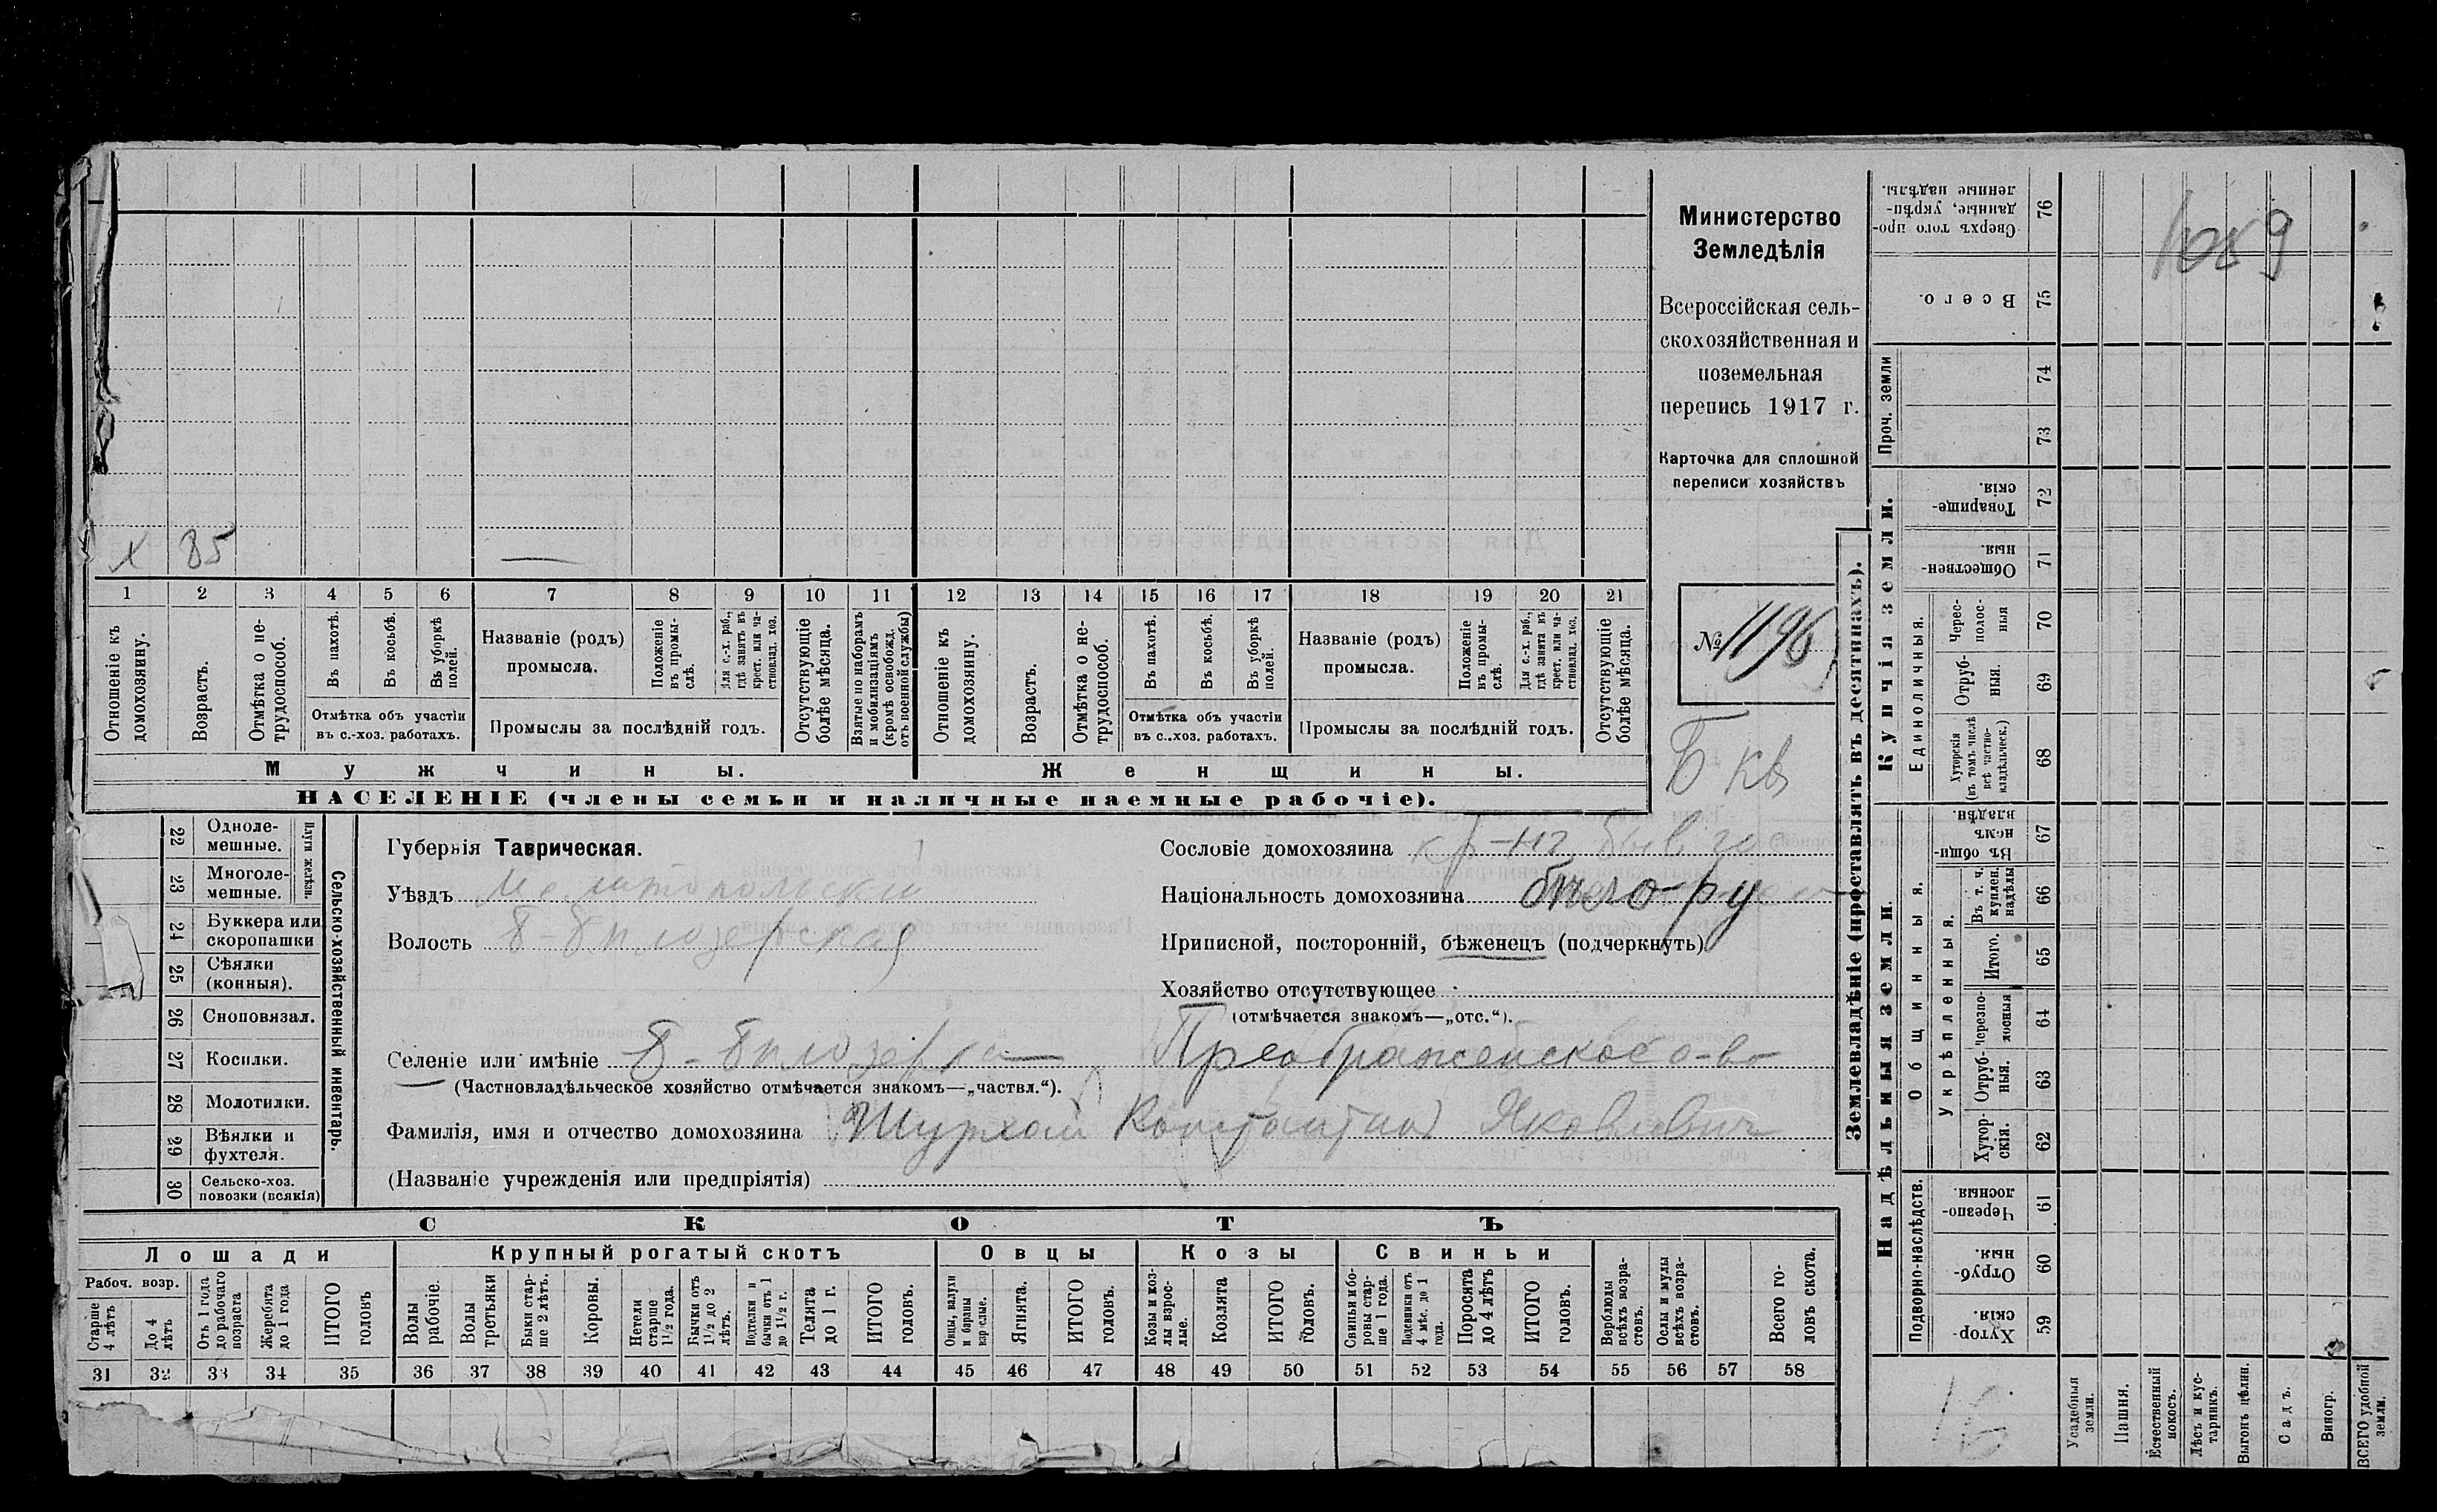 Министерство
Земледѣлія
Всероссійская сель-
скохозяйственная и
поземельная
перепись 1917 г.
Карточка для сплошной
переписи хозяйствъ
№ 1196
Б кв
х 85 —
1 2 3 4 5 6 7 8 9 10 11 12 13 14 15 16 17 18 19 20 21
Отношеніе къ домохозяину.
Возрастъ.
Отмѣтка о не-трудоспособ.
Въ пахотѣ.
Въ косьбѣ.
Въ уборкѣ полей.
Отмѣтка объ участіи
въ с.-хоз. работахъ.
Названіе (родъ)
промысла.
Положеніе въ промы-слѣ.
Для с.-х. раб., гдѣ занятъ въ крест. или ча-стновлад. хоз.
Промыслы за послѣдній годъ.
Отсутствующіе болѣе мѣсяца.
Взятые по наборамъ и мобилизаціямъ (кромѣ освобожд. отъ военной службы)
Отношеніе къ домохозяину.
Возрастъ.
Отмѣтка о не-трудоспособ.
Въ пахотѣ.
Въ косьбѣ.
Въ уборкѣ полей.
Отмѣтка объ участіи
въ с..хоз. работахъ.
Названіе (родъ)
промысла.
Положеніе въ промы-слѣ.
Для с.-х. раб., гдѣ занята въ крест. или ча-стновлад. хоз.
Промыслы за послѣдній годъ.
Отсутствующіе болѣе мѣсяца.
Мужчины. Женщины.
НАСЕЛЕНІЕ (члены семьи и наличные наемные рабочіе).
Сельско-хозяйственный инвентарь.
Плуги желѣзн.
22 Одноле-мешные.
23 Многоле-мешные.
24 Буккера или скоропашки
25 Сѣялки (конныя).
26 Сноповязал.
27 Косилки.
28 Молотилки.
29 Вѣялки и фухтеля.
30 Сельско-хоз. повозки (всякія)
Губернія Таврическая.
Уѣздъ Мелитопольский
Волость Б-Бѣлозерская
Селеніе или имѣніе Б-Бѣлозерка
(Частновладѣльческое хозяйство отмѣчается знакомъ—„частвл.“).
Сословіе домохозяина кр-нъ
Національность домохозяина
Приписной, посторонній, бѣженецъ (подчеркнуть)
Хозяйство отсутствующее
(отмѣчается знакомъ—„отс.“).
Преображенское о-во
Фамилія, имя и отчество домохозяина Константин Яковлевич
(Названіе учрежденія или предпріятія)
СКОТЪ
Лошади Крупный рогатый скотъ Овцы Козы Свиньи
Рабоч. возр.
Старше 4 лѣтъ
До 4 лѣтъ
Отъ 1 года до рабочаго возраста
Жеребята до 1 года
ИТОГО головъ
Волы рабочіе.
Волы третьяки
Быки стар-ше 2 лѣтъ.
Коровы.
Нетели старше 1½ года.
Бычки отъ 1½ до 2 лѣтъ.
Подтелки и бычки отъ 1 до 1½ г.
Телята до 1 г.
ИТОГО головъ.
Овцы, валухи и бараны взрослые.
Ягнята.
ИТОГО головъ.
Козы и коз-лы взрос-лые.
Козлята
ИТОГО головъ.
Свиньи и бо-ровы стар-ше 1 года.
Подсвинки отъ 4 мѣс. до 1 года.
Поросята до 4 лѣтъ
ИТОГО головъ.
Верблюды всѣхъ возра-стовъ.
Ослы и мулы всѣхъ возра-стовъ.
Всего го-ловъ скота.
31 32 33 34 35 36 37 38 39 40 41 42 43 44 45 46 47 48 49 50 51 52 53 54 55 56 57 58
Землевладѣніе (проставлять въ десятинахъ).
Купчія земли.
Надѣльныя земли.
Сверхъ того про-данные, укрѣп-ленные надѣлы. 76
Всего. 75
Проч. земли 74 73
Товарище-скія. 72
Обществен-ныя. 71
Единоличныя.
Черес-полос-ныя 70
Отруб-ныя. 69
Хуторскія (въ томъ числѣ всѣ частно-владѣльческ.) 68
Общинныя.
Въ общи-номъ владѣн. 67
Укрѣпленныя.
Въ т. ч. куплен. надѣлы 66
Итого. 65
Черезпо-лосныя 64
Отруб-ныя. 63
Хутор-скія. 62
Подворно-наслѣдств.
Черезпо-лосныя. 61
Отруб-ныя. 60
Хутор-скія. 59
Усадебныя земли.
Пашня.
Естественный покосъ.
Лѣсъ и кус-тарникъ.
Выгонъ цѣлин.
Садъ.
Виногр.
ВСЕГО удобной земли.